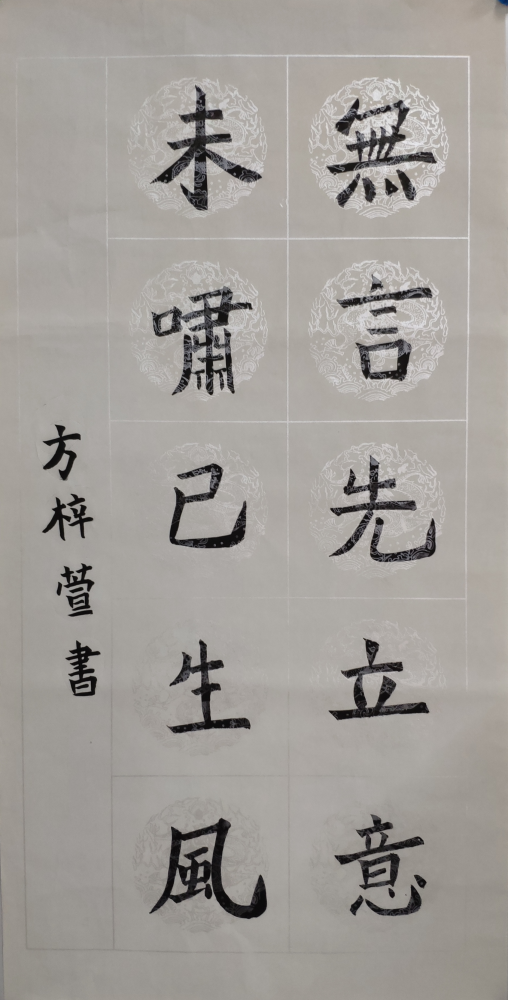 無言先立意
未嘯已生風
方梓萱書